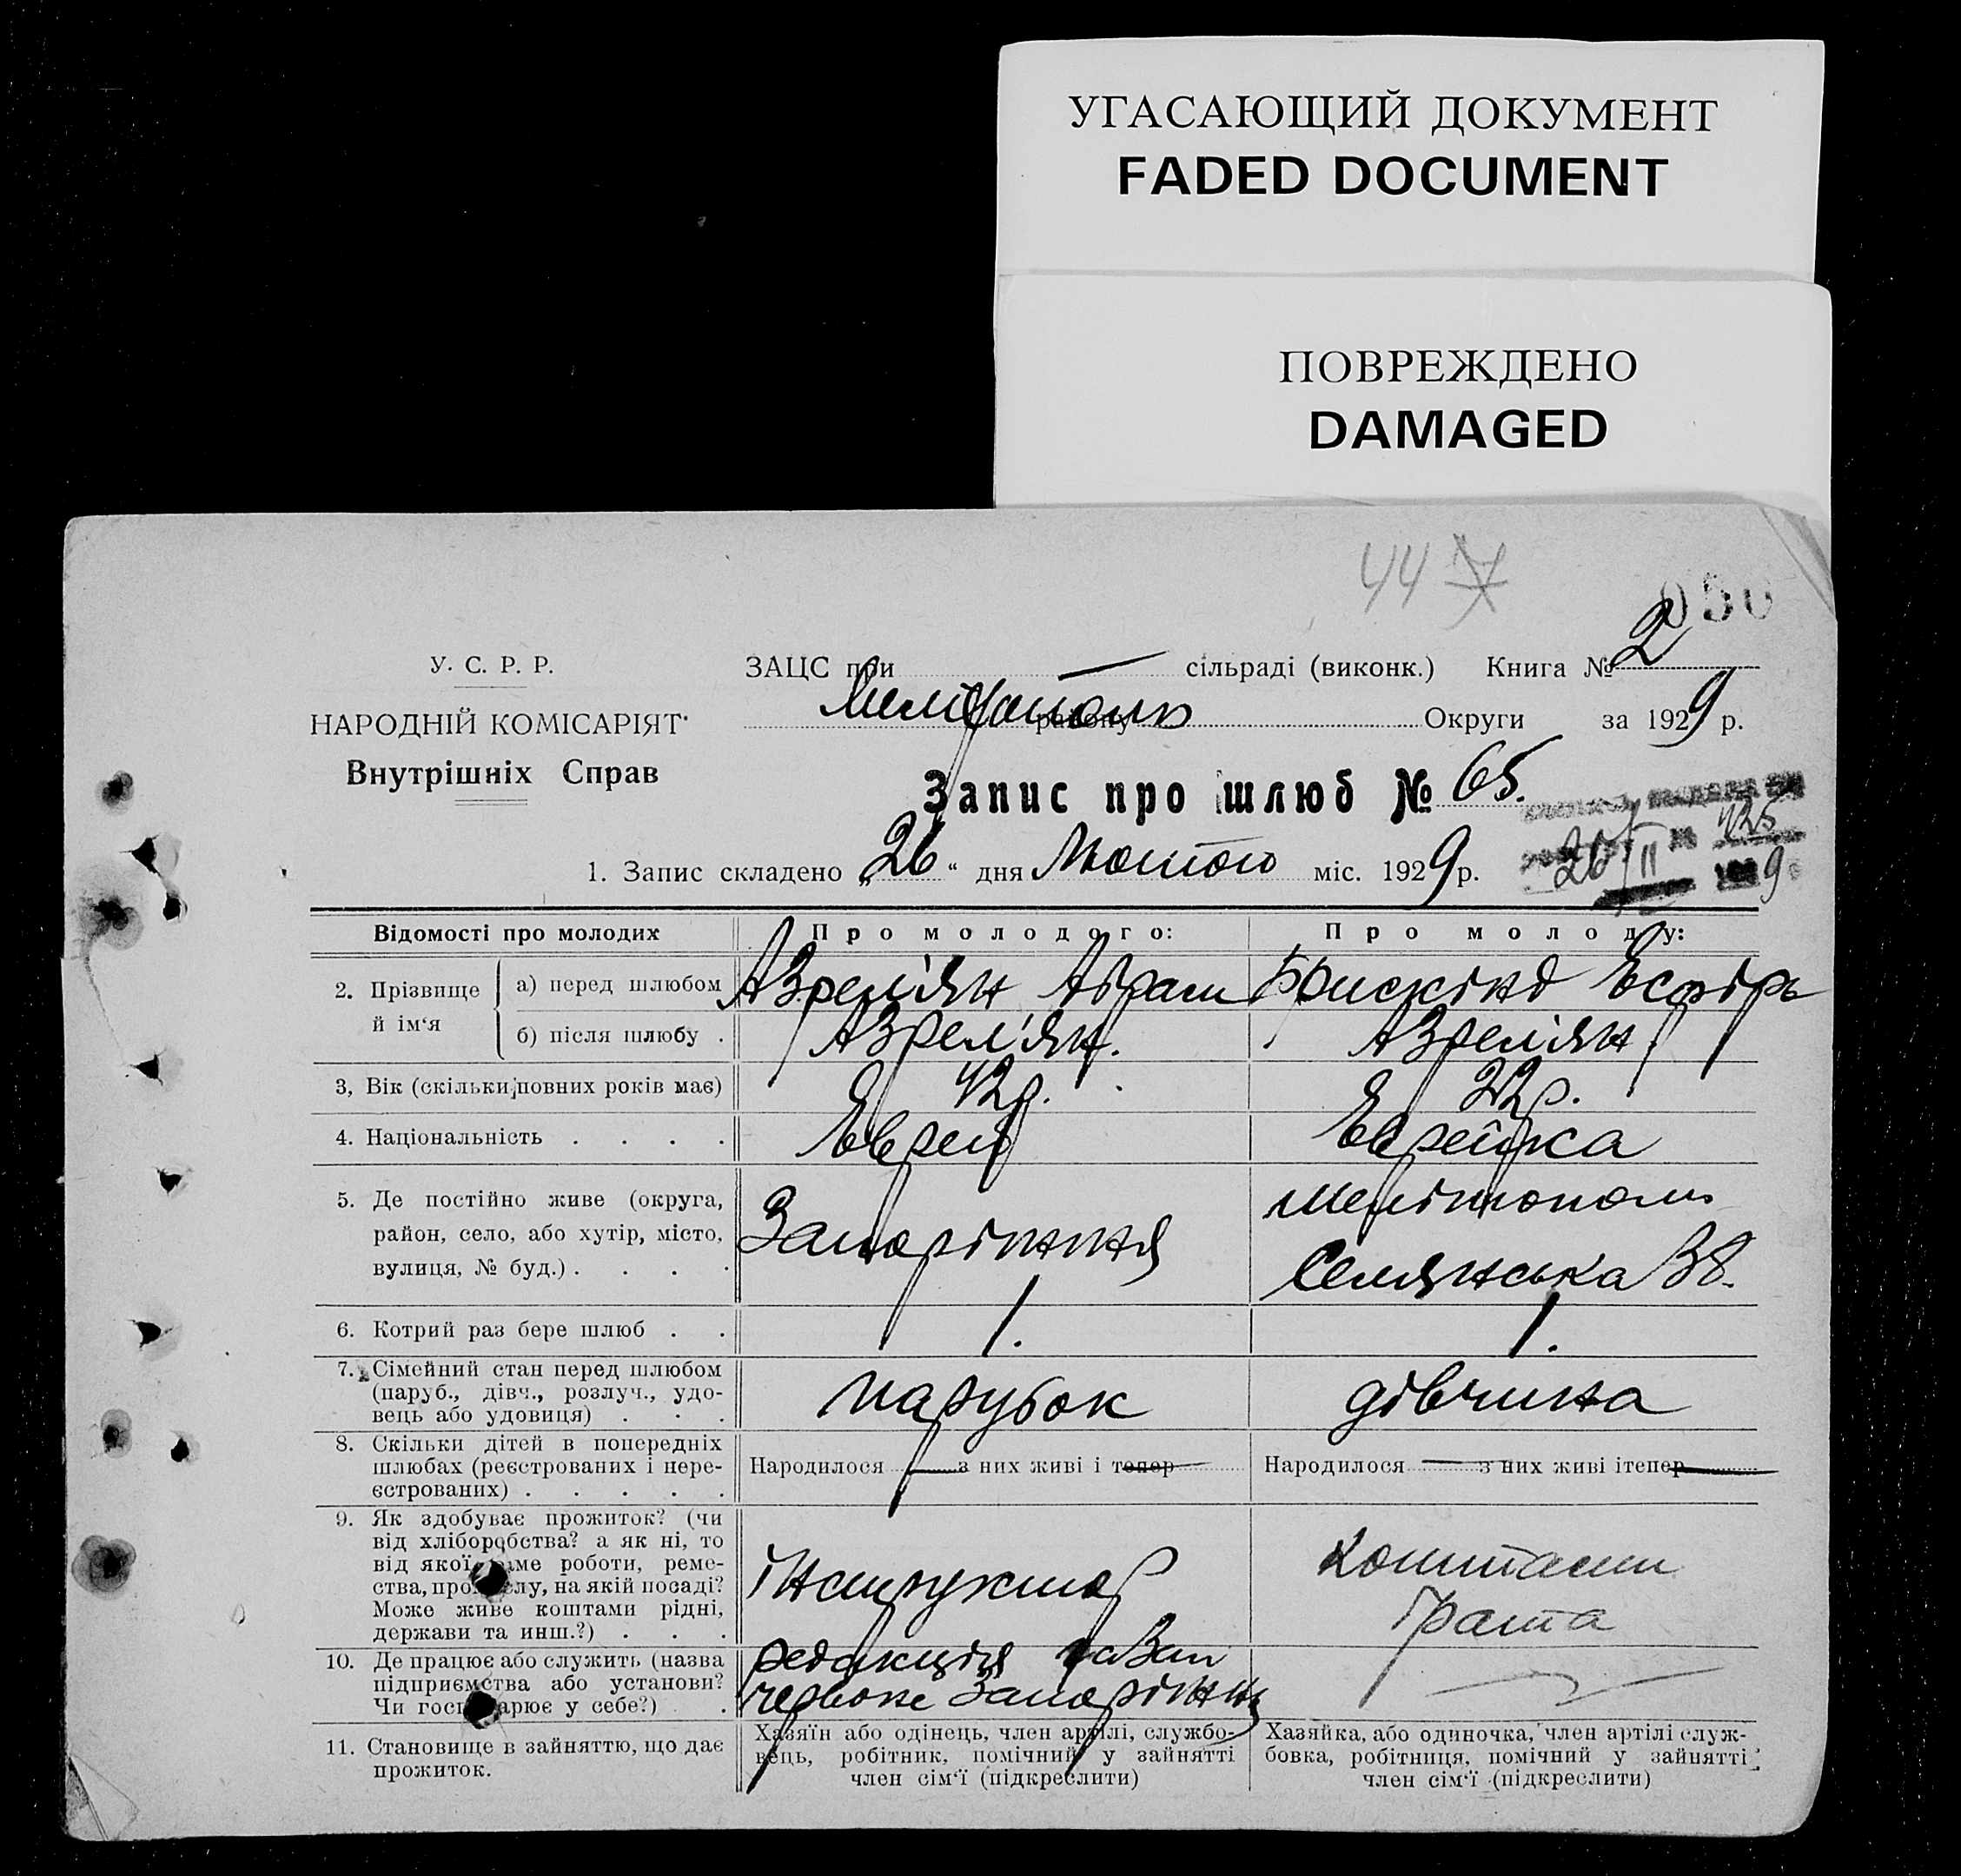 УГАСАЮЩИЙ ДОКУМЕНТ
FADED DOCUMENT
ПОВРЕЖДЕНО
DAMAGED
44
У. С. Р. Р.
НАРОДНІЙ КОМІСАРІЯТ
Внутрішніх Справ
ЗАЦС при — сільраді (виконк.) Книга № 2
району Округи за 1929 р.
Запис про шлюб № 65.
1. Запис складено „26“ дня Лютого міс. 1929 р.
26/II 9
Відомості про молодих Про молодого: Про молоду:
2. Прізвище й ім‘я
а) перед шлюбом Азрел'ян Абрам Брискінд Есфірь
б) після шлюбу . Азрел'ян. Азрел'ян
3, Вік (скільки повних років має) 42р. 22р.
4. Національність . . . . Еврей Еврейка
5. Де постійно живе (округа,
район, село, або хутір, місто,
вулиця, № буд.) . . . .
Запоріжжя
Мелітополь
Селянська 38.
6. Котрий раз бере шлюб . . 1. 1.
7. Сімейний стан перед шлюбом
(паруб., дівч., розлуч., удо-
вець або удовиця) . . .
парубок дівчина
8. Скільки дітей в попередніх
шлюбах (реєстрованих і нере-
єстрованих) . . . . .
Народилося — з них живі і тепер —
Народилося — з них живі ітепер —
9. Як здобуває прожиток? (чи
від хліборобства? а як ні, то
від якої саме роботи, реме-
ства, промислу, на якій посаді?
Може живе коштами рідні,
держави та инш.?) . . .
Інструктор
Коштами
брата
10. Де працює або служить (назва
підприємства або установи?
Чи господарює у себе?) .
редакція газ
червоне Запоріжжя
11. Становище в зайняттю, що дає
прожиток.
Хазяїн або одінець, член артілі, службо-
вець, робітник, помічний у зайнятті
член сім‘ї (підкреслити)
Хазяйка, або одиночка, член артілі служ-
бовка, робітниця, помічний у зайнятті
член сім‘ї (підкреслити)